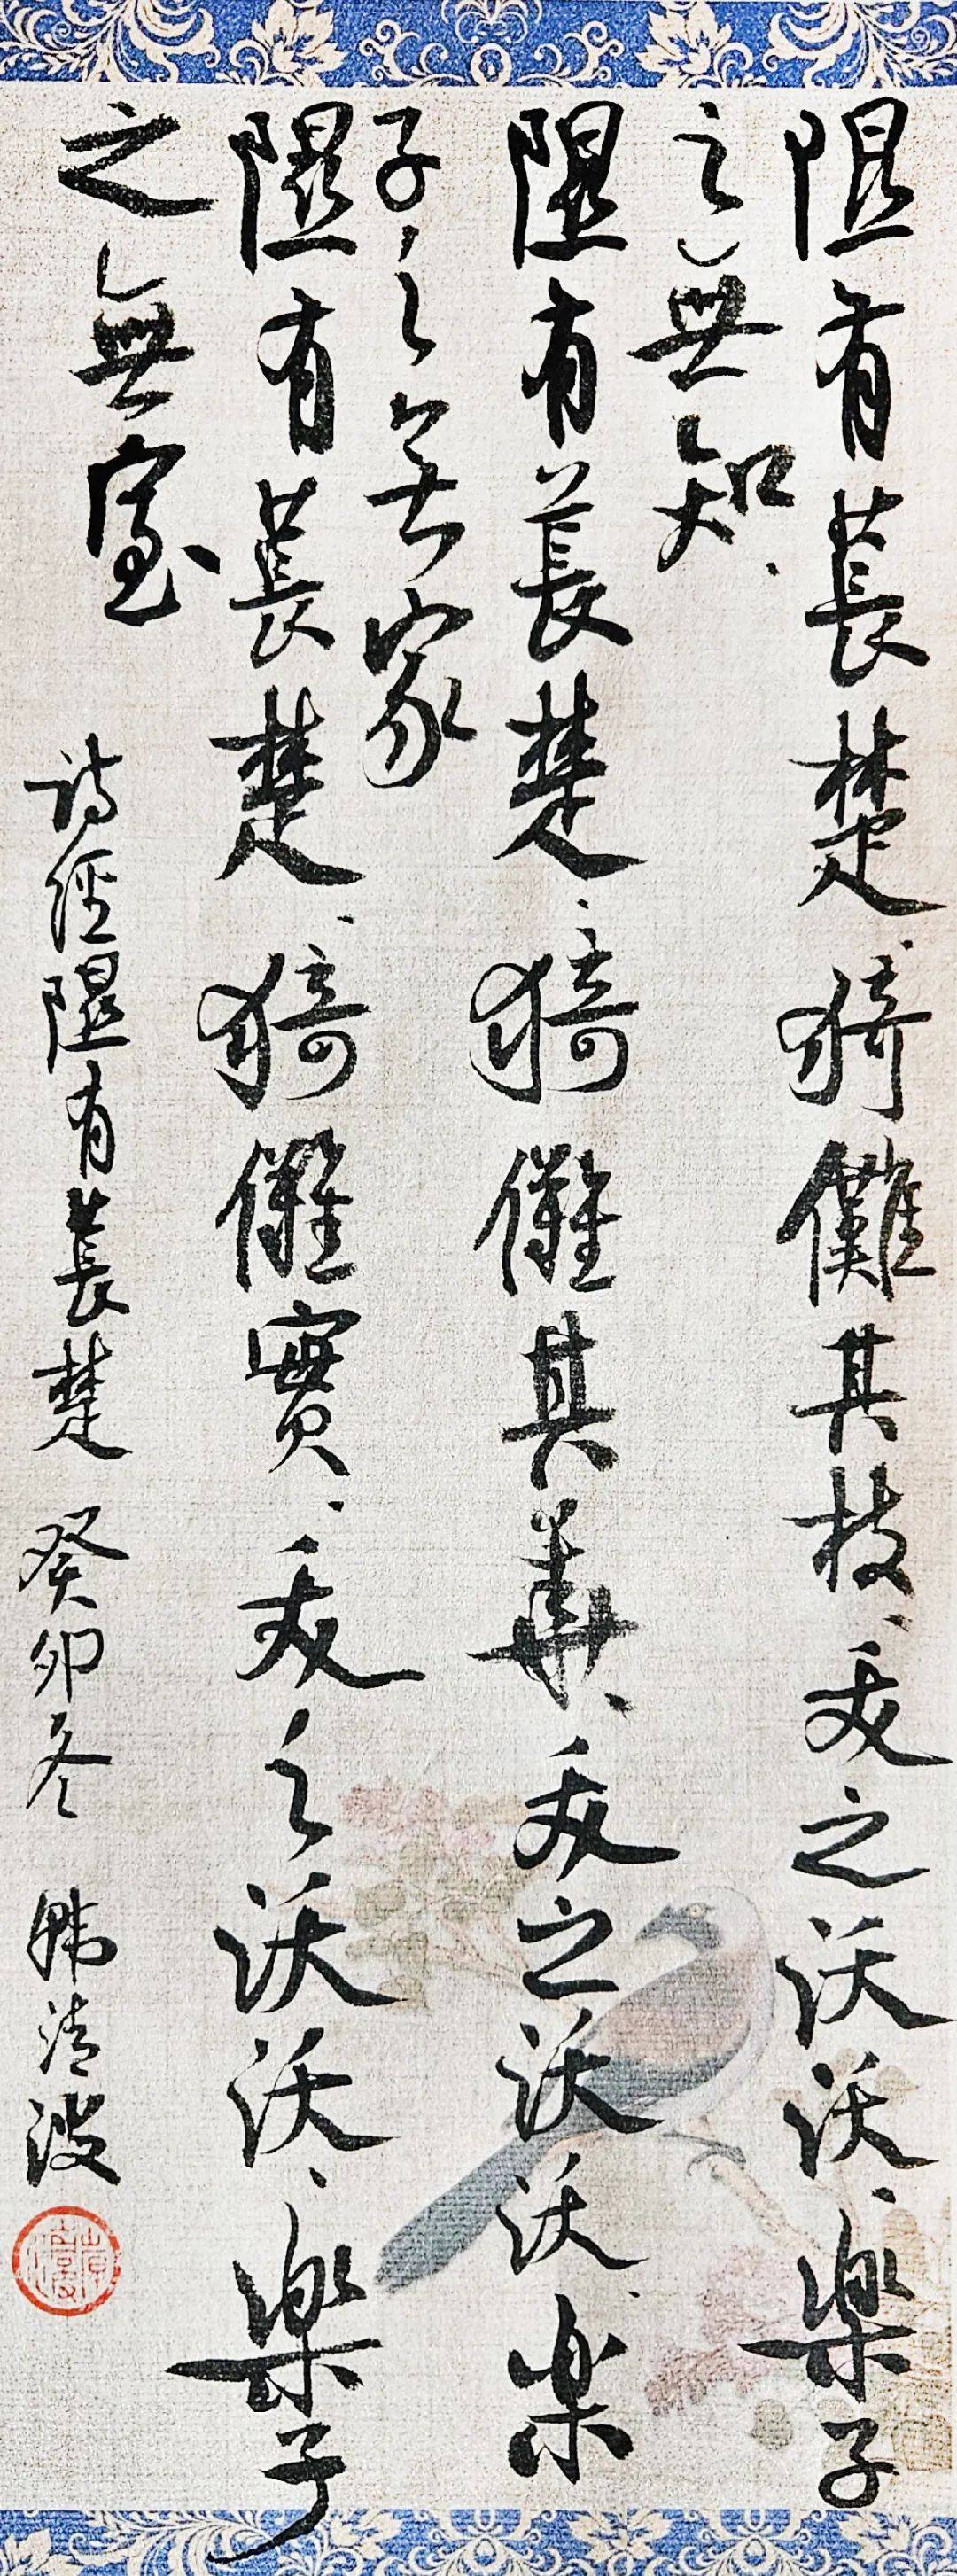 隰有萇楚、猗儺其枝、夭之沃沃、樂子
之無知、
隰有萇楚、猗儺其華、夭之沃沃、楽
子之無家
隰有萇楚、猗儺實、夭之沃沃、樂子
之無室
诗經隰有萇楚 癸卯冬 韩清波